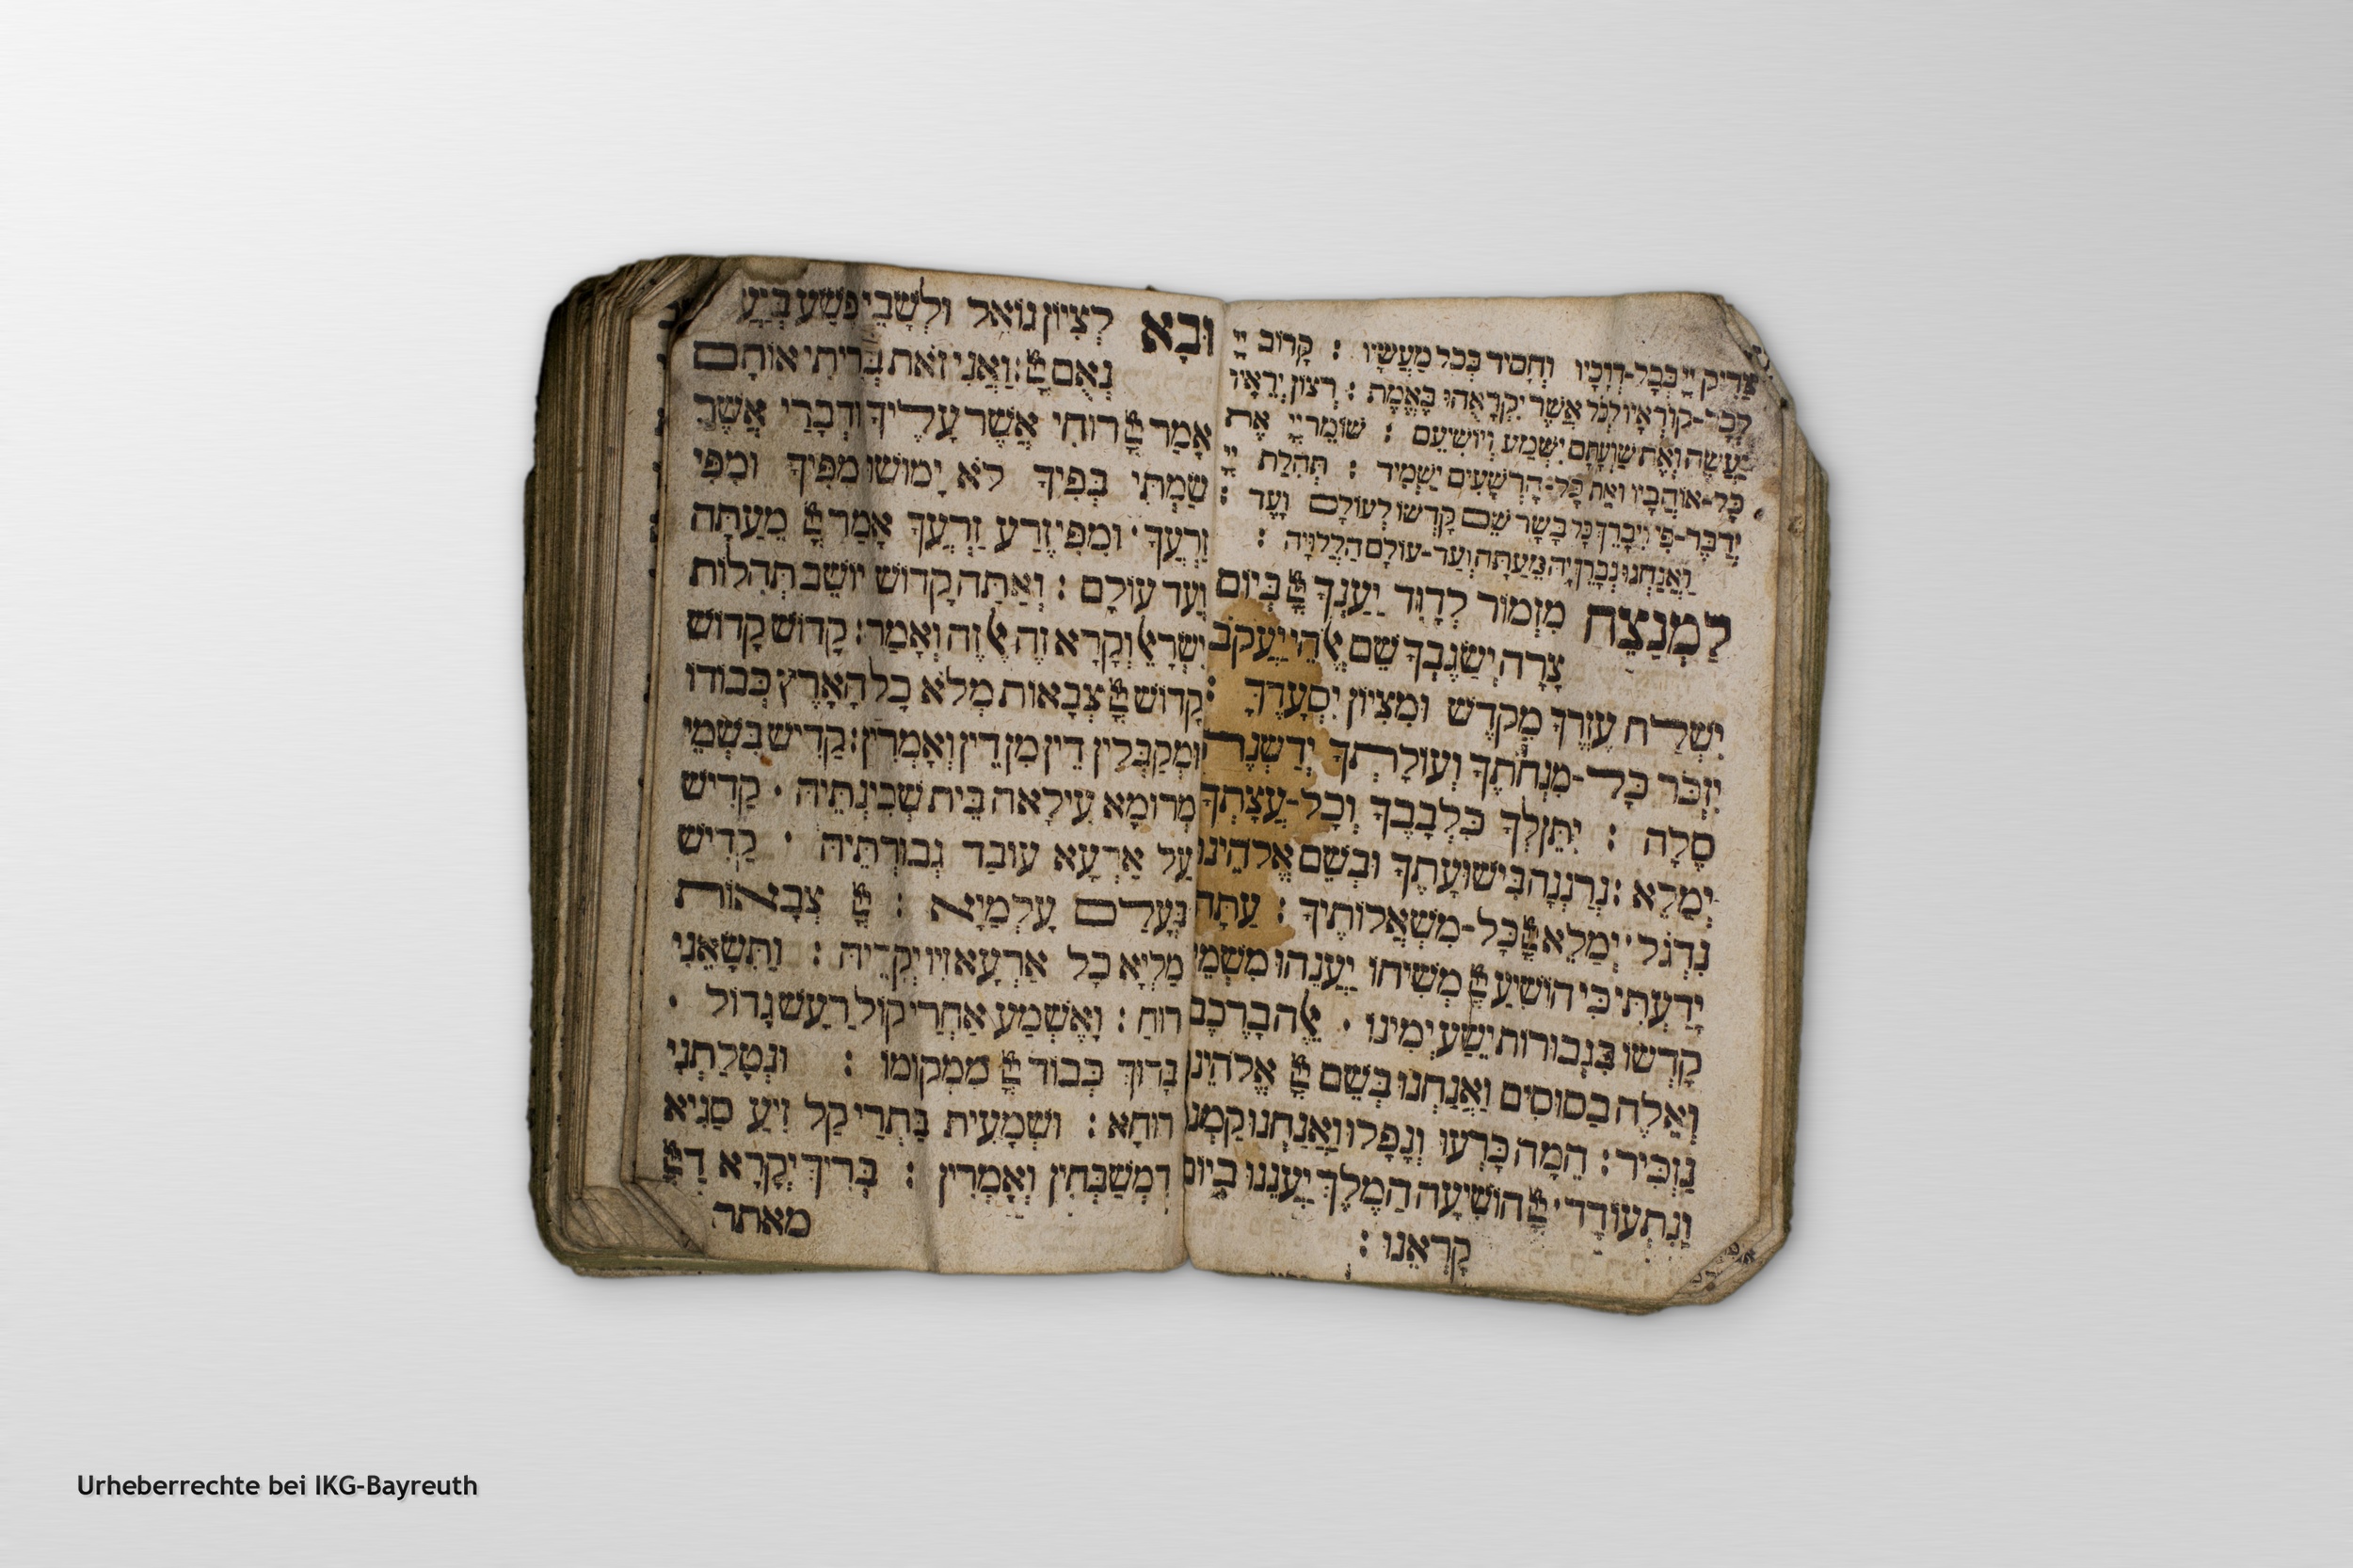 צַדִּיק יְיָ בְּכָל-דְּרָכָיו וְחָסִיד בְּכל מַעֲשָׂיו : קָרוֹב יְיָ
לְכָל-קוֹרְאָיו לְכֹל אֲשֶׁר יִקְרָאֻהוּ בֶאֱמֶת : רְצוֹן יְרֵאָיו
יַעֲשֶׂה וְאֶת שַׁוְעָתָם יִשְׁמַע וְיוֹשִׁיעֵם : שׁוֹמֵר יְיָ אֶת
כָּל-אוֹהֲבָיו וְאֵת כָּל-הָרְשָׁעִים יַשְׁמִיד : תְּהִלַּת יְיָ
יְדַבֶּר-פִּי וִיבָרֵךְ כָּל בָּשָׂר שֵׁם קָדְשׁוֹ לְעוֹלָם וָעֶד :
וַאֲנַחְנוּ נְבָרֵךְ יָהּ מֵעַתָּה וְעַד-עוֹלָם הַלְלוּיָהּ :
לַמְנַצֵּחַ מִזְמוֹר לְדָוִד יַעַנְךָ יְיָ בְּיוֹם
צָרָה יְשַׂגֶּבְךָ שֵׁם אֱלֹהֵי יַעֲקֹב
יִשְׁלַח עֶזְרְךָ מִקֹּדֶשׁ וּמִצִּיּוֹן יִסְעָדֶךָּ :
יִזְכֹּר כָּל-מִנְחֹתֶךָ וְעוֹלָתְךָ יְדַשְּׁנֶה
סֶלָה : יִתֶּן לְךָ כִלְבָבֶךָ וְכָל-עֲצָתְךָ
יְמַלֵּא : נְרַנְּנָה בִּישׁוּעָתֶךָ וּבְשֵׁם אֱלֹהֵינוּ
נִדְגֹּל · יְמַלֵּא יְיָ כָּל-מִשְׁאֲלוֹתֶיךָ : עַתָּה
יָדַעְתִּי כִּי הוֹשִׁיעַ יְיָ מְשִׁיחוֹ יַעֲנֵהוּ מִשְּׁמֵי
קָדְשׁוֹ בִּגְבוּרוֹת יֵשַׁע יְמִינוֹ · אֵלֶּה בָרֶכֶב
וְאֵלֶּה בַסּוּסִים וַאֲנַחְנוּ בְּשֵׁם יְיָ אֱלֹהֵינוּ
נַזְכִּיר : הֵמָּה כָּרְעוּ וְנָפָלוּ וַאֲנַחְנוּ קַמְנוּ
וַנִּתְעוֹדָד · יְיָ הוֹשִׁיעָה הַמֶּלֶךְ יַעֲנֵנוּ בְיוֹם
קָרְאֵנוּ :
וּבָא לְצִיּוֹן גּוֹאֵל וּלְשָׁבֵי פֶשַׁע בְּיַעֲ
נְאֻם יְיָ : וַאֲנִי זֹאת בְּרִיתִי אוֹתָם
אָמַר יְיָ רוּחִי אֲשֶׁר עָלֶיךָ וּדְבָרַי אֲשֶׁר
שַׂמְתִּי בְּפִיךָ לֹא יָמוּשׁוּ מִפִּיךָ וּמִפִּי
זַרְעֲךָ · וּמִפִּי זֶרַע זַרְעֲךָ אָמַר יְיָ מֵעַתָּה
וְעַד עוֹלָם : וְאַתָּה קָדוֹשׁ יוֹשֵׁב תְּהִלּוֹת
יִשְׂרָאֵל וְקָרָא זֶה אֶל זֶה וְאָמַר : קָדוֹשׁ קָדוֹשׁ
קָדוֹשׁ יְיָ צְבָאוֹת מְלֹא כָל הָאָרֶץ כְּבוֹדוֹ
וּמְקַבְּלִין דֵּין מִן דֵּין וְאָמְרִין : קַדִּישׁ בִּשְׁמֵי
מְרוֹמָא עִילָאָה בֵּית שְׁכִינְתֵּיהּ · קַדִּישׁ
עַל אַרְעָא עוֹבַד גְּבוּרְתֵּיהּ · קַדִּישׁ
בְּעָלַם עָלְמַיָא : יְיָ צְבָאוֹת
מַלְיָא כָל אַרְעָא זִיו יְקָרֵיהּ : וַתִּשָּׂאֵנִי
רוּחַ : וָאֶשְׁמַע אַחֲרַי קוֹל רַעַשׁ גָּדוֹל ·
בָּרוּךְ כְּבוֹד יְיָ מִמְּקוֹמוֹ : וּנְטָלַתְנִי
רוּחָא : וּשְׁמָעִית בַּתְרַי קַל זִיעַ סַגִּיא
דִמְשַׁבְּחִין וְאָמְרִין : בְּרִיךְ יְקָרָא דַיְיָ
מאתר
Urheberrechte bei IKG-Bayreuth